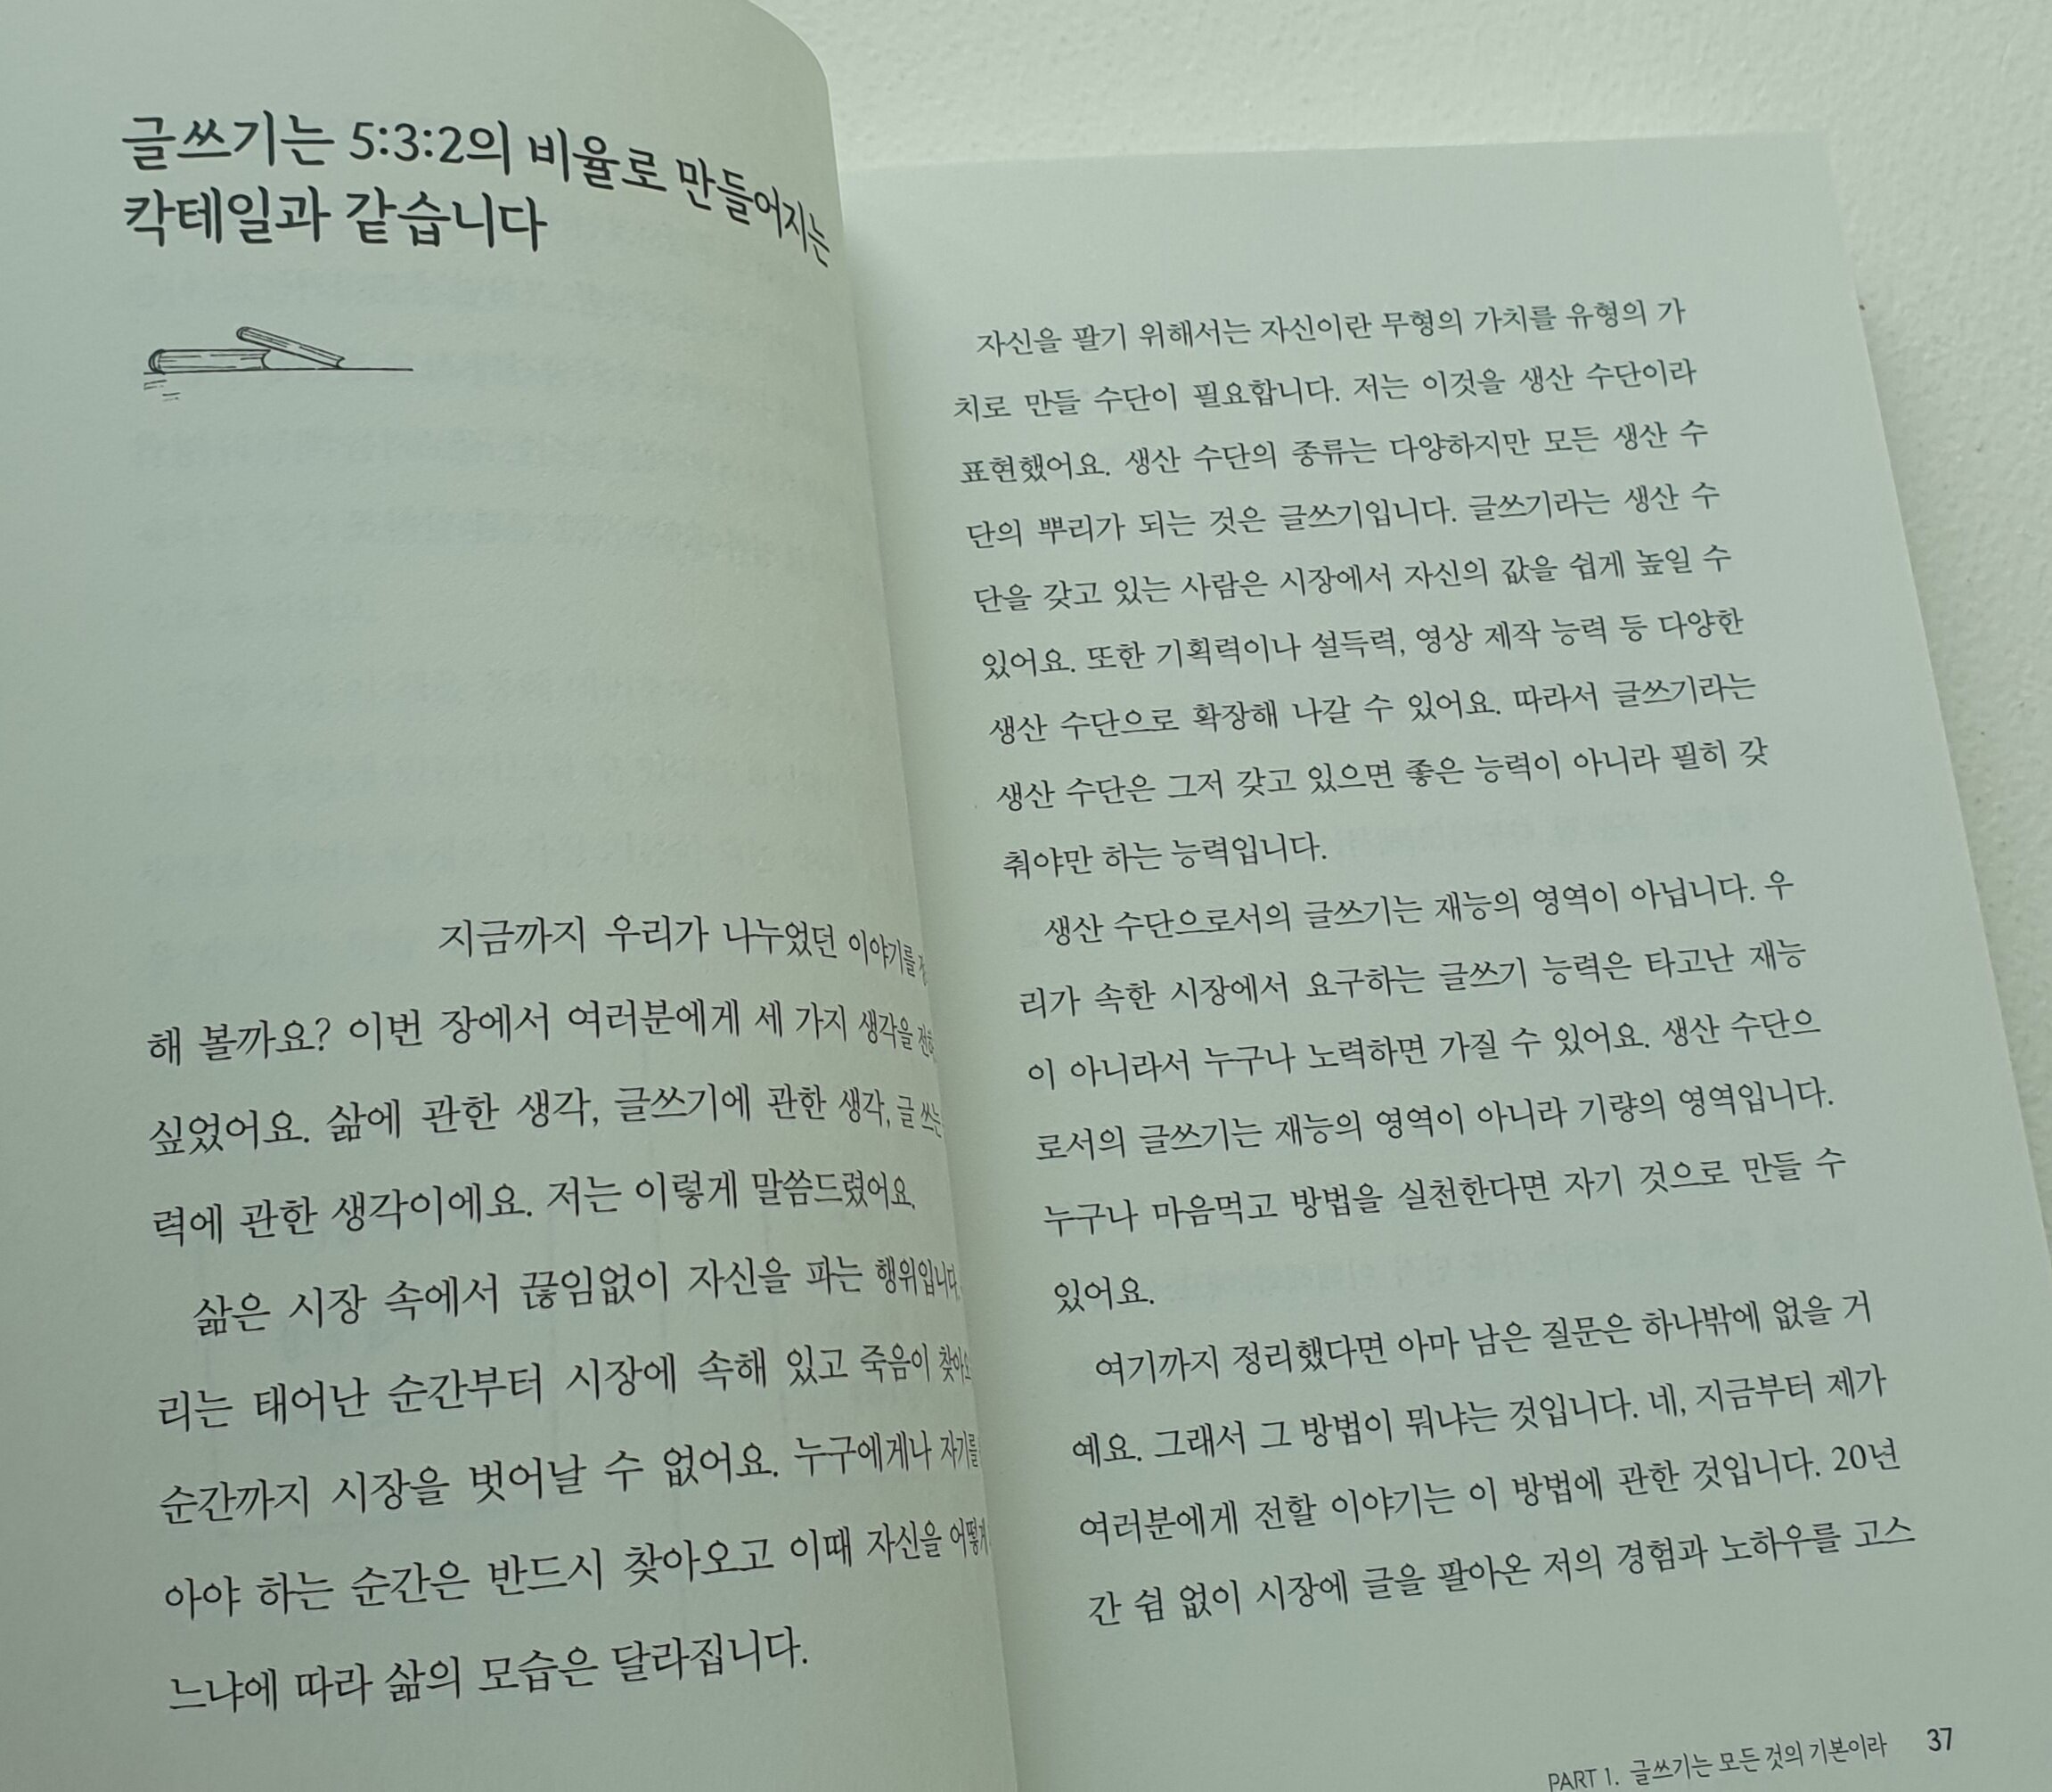 글쓰기는 5:3:2의 비율로 만들어지는
칵테일과 같습니다
지금까지 우리가 나누었던 이야기를
해 볼까요? 이번 장에서 여러분에게 세 가지 생각을
싶었어요. 삶에 관한 생각, 글쓰기에 관한 생각, 글 쓰는
력에 관한 생각이에요. 저는 이렇게 말씀드렸어요.
삶은 시장 속에서 끊임없이 자신을 파는 행위입니다.
리는 태어난 순간부터 시장에 속해 있고 죽음이
순간까지 시장을 벗어날 수 없어요. 누구에게나 자기를
아야 하는 순간은 반드시 찾아오고 이때 자신을 어떻게
느냐에 따라 삶의 모습은 달라집니다.
자신을 팔기 위해서는 자신이란 무형의 가치를 유형의 가
치로 만들 수단이 필요합니다. 저는 이것을 생산 수단이라
표현했어요. 생산 수단의 종류는 다양하지만 모든 생산 수
단의 뿌리가 되는 것은 글쓰기입니다. 글쓰기라는 생산 수
단을 갖고 있는 사람은 시장에서 자신의 값을 쉽게 높일 수
있어요. 또한 기획력이나 설득력, 영상 제작 능력 등 다양한
생산 수단으로 확장해 나갈 수 있어요. 따라서 글쓰기라는
생산 수단은 그저 갖고 있으면 좋은 능력이 아니라 필히 갖
춰야만 하는 능력입니다.
생산 수단으로서의 글쓰기는 재능의 영역이 아닙니다. 우
리가 속한 시장에서 요구하는 글쓰기 능력은 타고난 재능
이 아니라서 누구나 노력하면 가질 수 있어요. 생산 수단으
로서의 글쓰기는 재능의 영역이 아니라 기량의 영역입니다.
누구나 마음먹고 방법을 실천한다면 자기 것으로 만들 수
있어요.
여기까지 정리했다면 아마 남은 질문은 하나밖에 없을 거
예요. 그래서 그 방법이 뭐냐는 것입니다. 네, 지금부터 제가
여러분에게 전할 이야기는 이 방법에 관한 것입니다. 20년
간 쉼 없이 시장에 글을 팔아온 저의 경험과 노하우를 고스
PART 1. 글쓰기는 모든 것의 기본이라 37